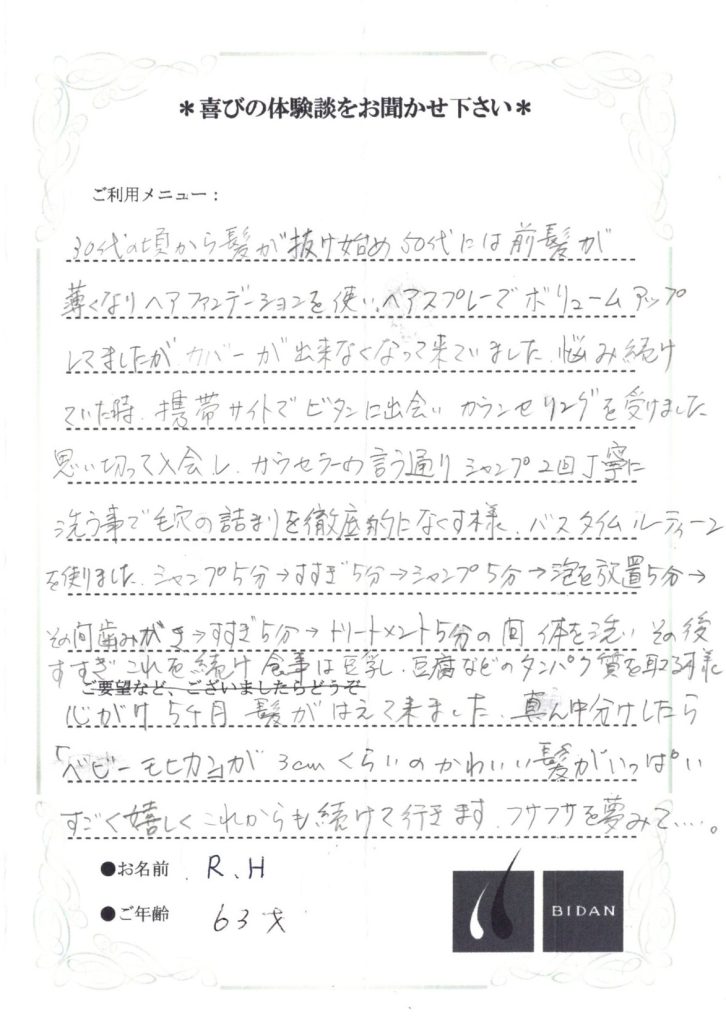 ＊喜びの体験談をお聞かせ下さい＊
ご利用メニュー：
30代の頃から髪が抜け始め50代には前髪が
薄くなりヘアファンデーションを使い、ヘアスプレーでボリュームアップ
してましたがカバーが出来なくなって来ていました、悩み続け
ていた時、携帯サイトでビダンに出会いカウンセリングを受けました
思い切って入会し、カウセラーの言う通りシャンプ2回丁寧に
洗う事で毛穴の詰まりを徹底的になくす様、バスタイムルーティーン
を創りました、シャンプ5分→すすぎ5分→シャンプ5分→泡を放置5分→
その間歯みがき→すすぎ5分→トリートメント5分の間体を洗いその後
すすぎこれを続け食事は豆乳、豆腐などのタンパク質を取る様
ご要望など、ございましたらどうぞ
心がけ5ヶ月髪がはえて来ました、真ん中分けしたら
「ベビーモヒカン」が3cmくらいのかわいい髪がいっぱい
すごく嬉しくこれからも続けて行きます、フサフサを夢みて……。
●お名前 R、H
●ご年齢 63才
BIDAN